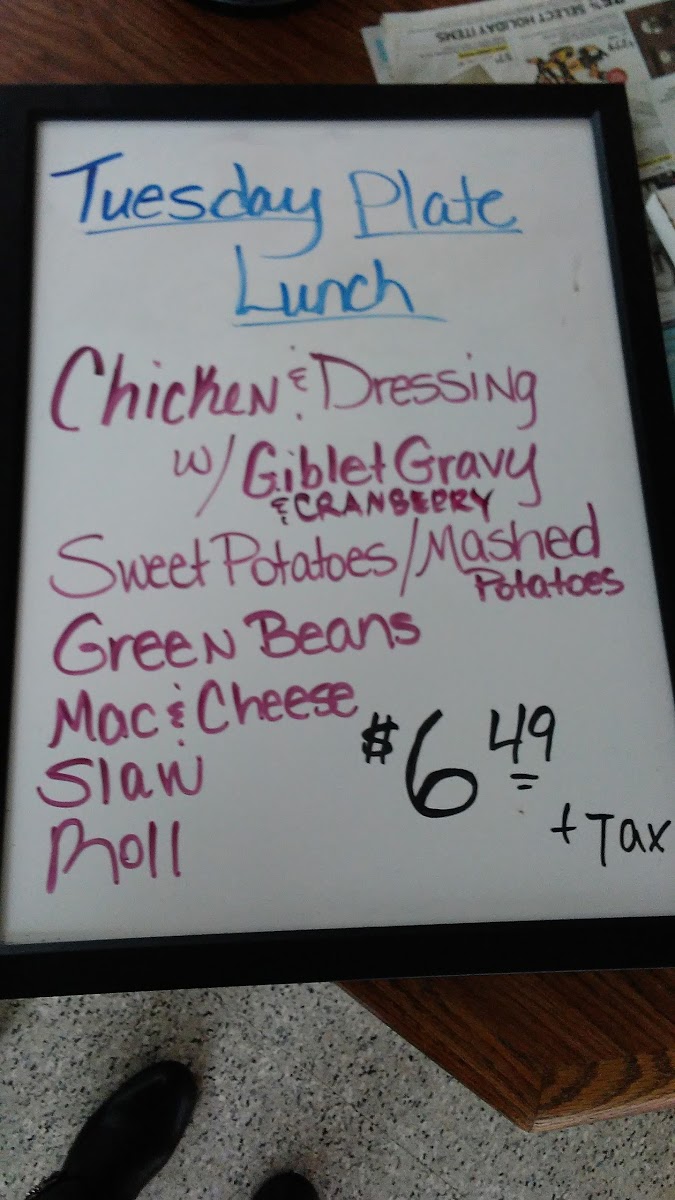 SELECT HOLIDAY ITEMS
Tuesday Plate
Lunch
Chicken & Dressing
w/ Giblet Gravy
& CRANBERRY
Sweet Potatoes/Mashed
Potatoes
Green Beans
Mac & Cheese
Slaw
Roll
$6 49
+ Tax